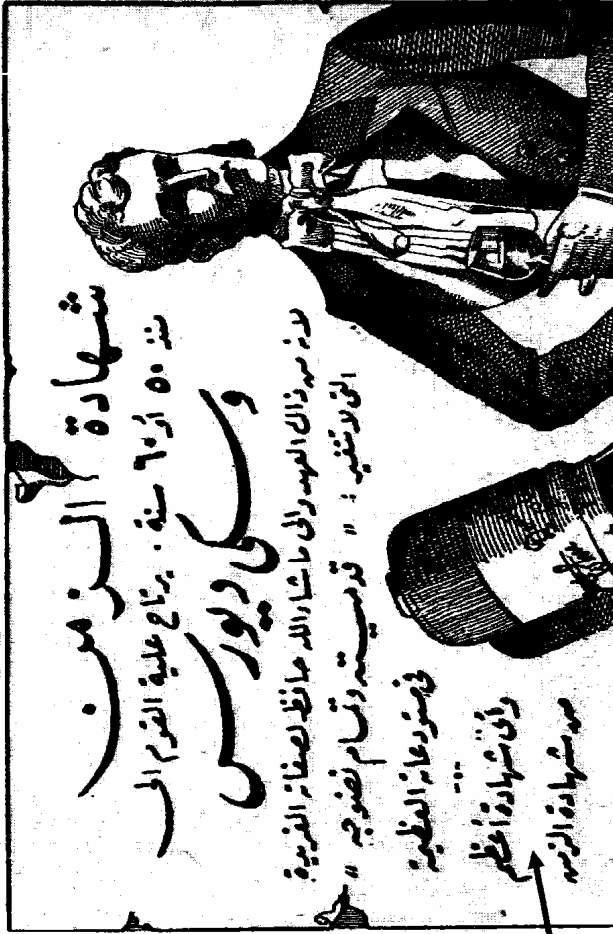 شهادة الزمن
منذ ٥٠ أو ٦٠ سنة . يرتاح علية القوم الى
وسكي ديورس
لانه من ذاك العهد والى ماشاء الله حافظ لصفاته الفريدة
التي لا تتغير : " قدميته وتمام نضوجه "
في مستودعاته العظيمة
وأي شهادة أعظم
من شهادة الزمن